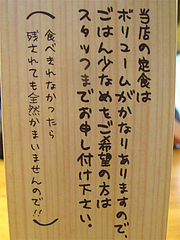 当店の定食は
ボリュームがかなりありますので、
ごはん少なめをご希望の方は
スタッフまでお申し付け下さい。
(食べきれなかったら
残されても全然かまいませんので!!)